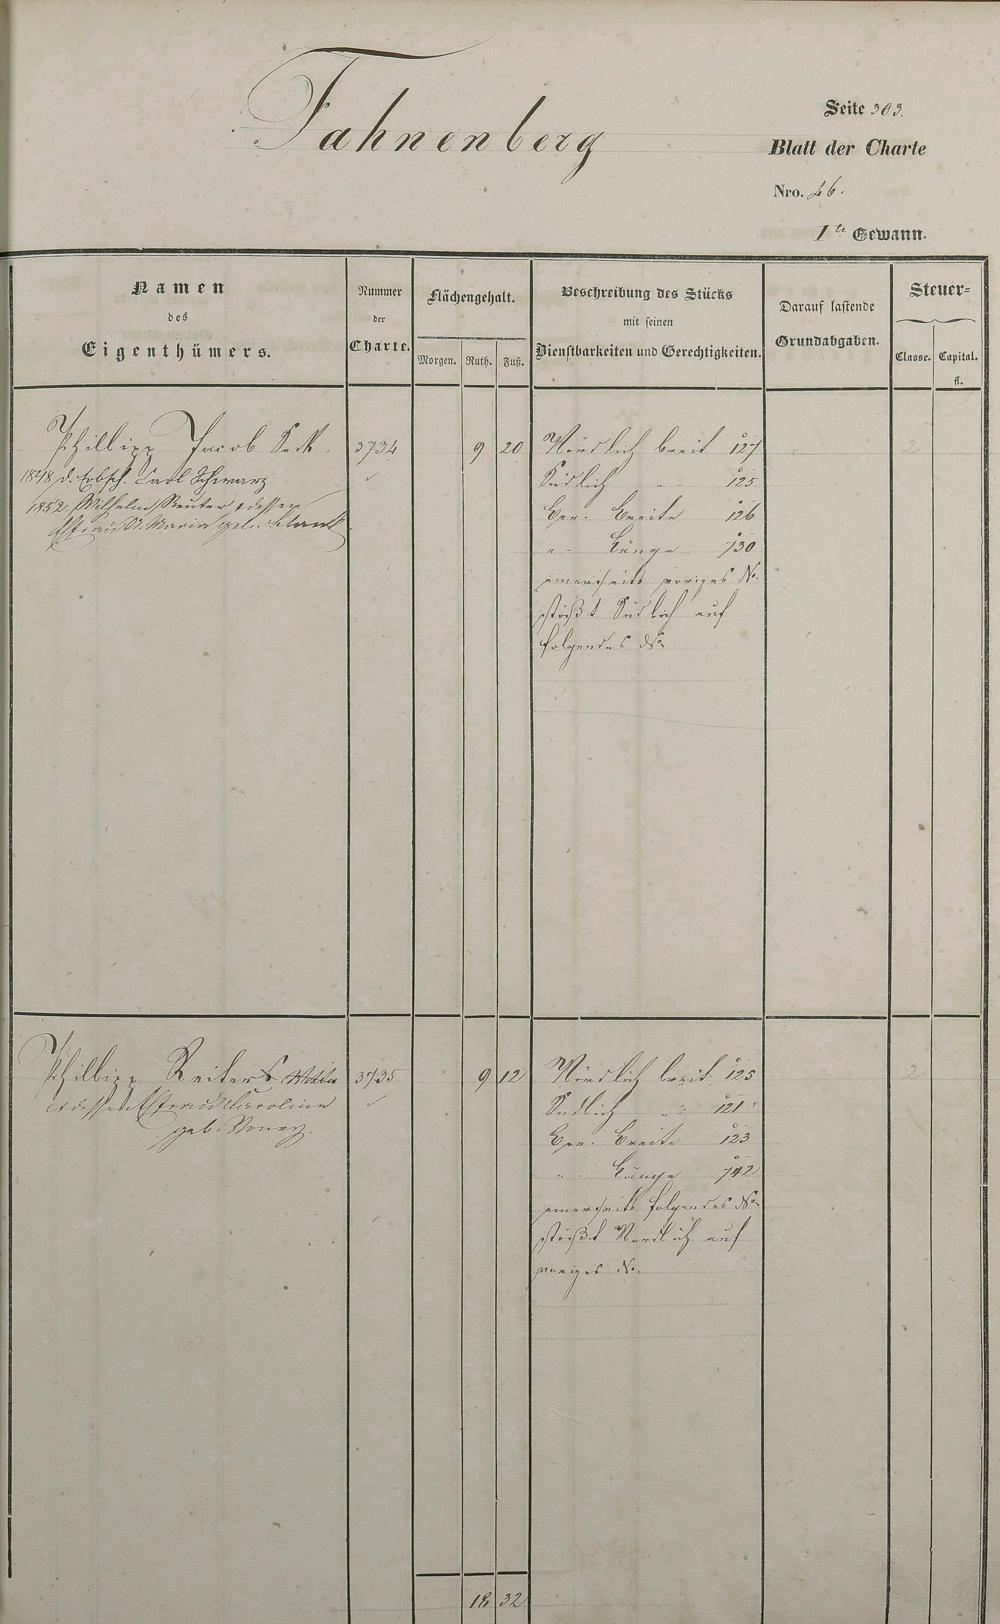 Fahnenberg
Seite 303.
Blatt der Charte
Nro. 26.
1te Gewann.
Namen
des
Eigenthümers.
Nummer
der
Charte.
Flächengehalt.
Morgen. Ruth. Fuß.
Beschreibung des Stücks
mit seinen
Dienstbarkeiten und Gerechtigkeiten.
Darauf lastende
Grundabgaben.
Steuer=
Classe. Capital.
fl.
Phillipp Jacob 3734 9 20 Nördlich breit 127 2
1848 d. Erbsch. Carl Schwarz
Südlich " 125
1852. Wilhelm Reuter
Ber. Breite 126
Maria geb.
" Länge 730
einerseits voriges No.
stößt Südlich auf
folgendes No.
Phillipp Reiters 3735 9 12 Nördlich breit 125 2
Ehefrau Caroline
Südlich " 121
geb.
Ber. Breite 123
" Länge 742
einerseits folgendes No.
stößt Nördlich auf
voriges No.
18 32